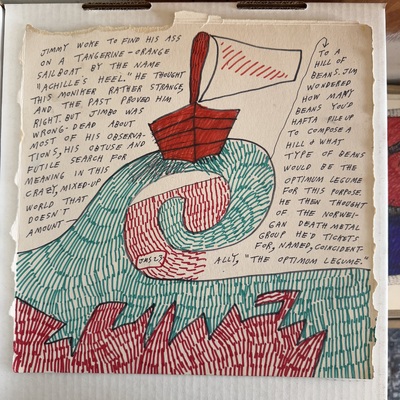 JIMMY WOKE TO FIND HIS ASS
ON A TANGERINE-ORANGE
SAILBOAT BY THE NAME
"ACHILLE'S HEEL." HE THOUGHT
THIS MONIKER RATHER STRANGE,
AND THE PAST PROVED HIM
RIGHT. BUT JIMBO WAS
WRONG-DEAD ABOUT
MOST OF HIS OBSERVA-
TIONS, HIS OBTUSE AND
FUTILE SEARCH FOR
MEANING IN THIS
CRAZY, MIXED-UP
WORLD THAT
DOESN'T
AMOUNT
TO A
HILL OF
BEANS. JIM
WONDERED
HOW MANY
BEANS YOU'D
HAFTA PILE UP
TO COMPOSE A
HILL & WHAT
TYPE OF BEANS
WOULD BE THE
OPTIMUM LEGUME
FOR THIS PURPOSE.
HE THEN THOUGHT
OF THE NORWEI-
GAN DEATH METAL
GROUP HE'D TICKETS
FOR, NAMED, COINCIDENT-
ALLY, "THE OPTIMUM LEGUME."